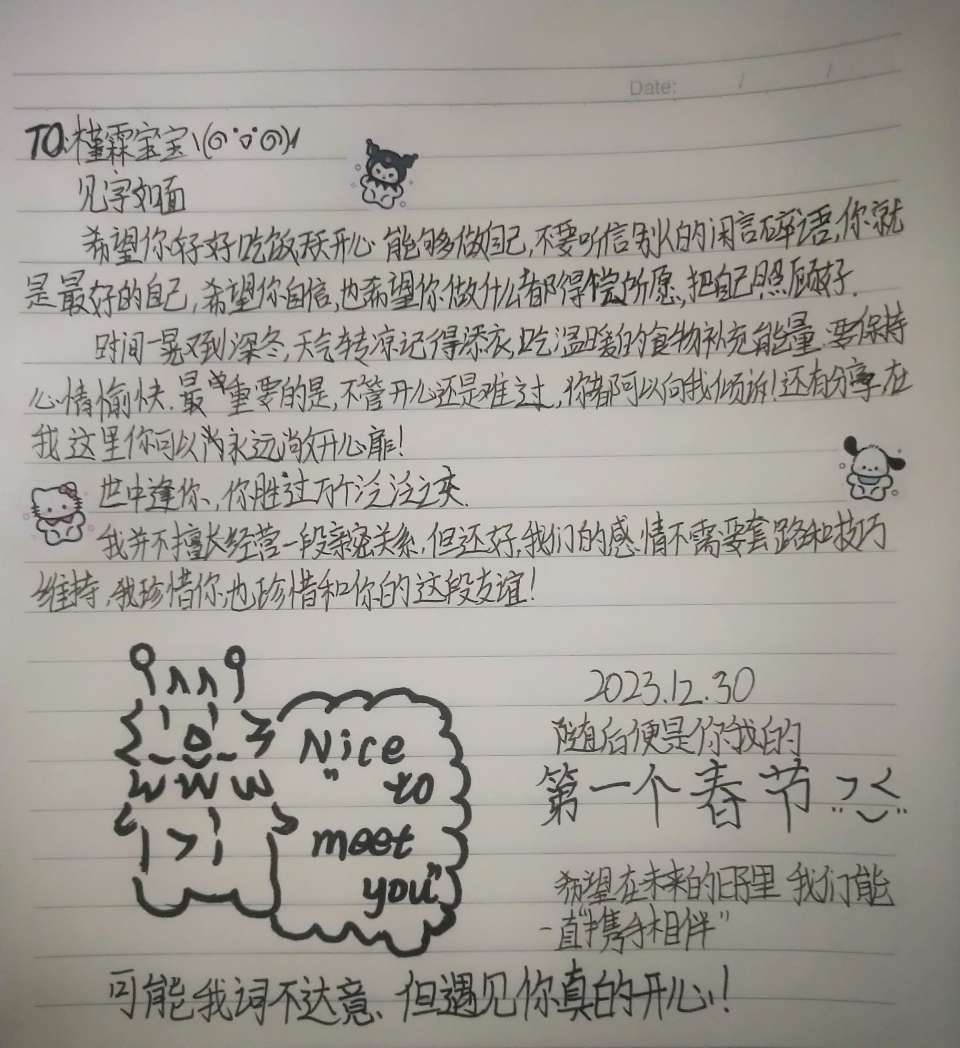 Date: / /
TO:槿霖宝宝\(ดˊᵕˋด)/
见字如面
希望你好好吃饭天天开心 能够做自己,不要听信别人的闲言碎语,你就
是最好的自己,希望你自信,也希望你做什么都得偿所愿,把自己照顾好.
时间一晃又到深冬,天气转凉记得添衣,吃温暖的食物补充能量.要保持
心情愉快.最重要的是,不管开心还是难过,你都可以向我倾诉!还有分享,在
我这里你可以永远敞开心扉!
世中逢你、你胜过万个泛泛之交.
我并不擅长经营一段亲密关系,但还好,我们的感情不需要套路和技巧
维持,我珍惜你,也珍惜和你的这段友谊!
"Nice
to
meet
you"
2023.12.30
随后便是你我的
第一个春节
希望在未来的日子里 我们能
一直"携手相伴"
可能我词不达意、但遇见你真的开心!